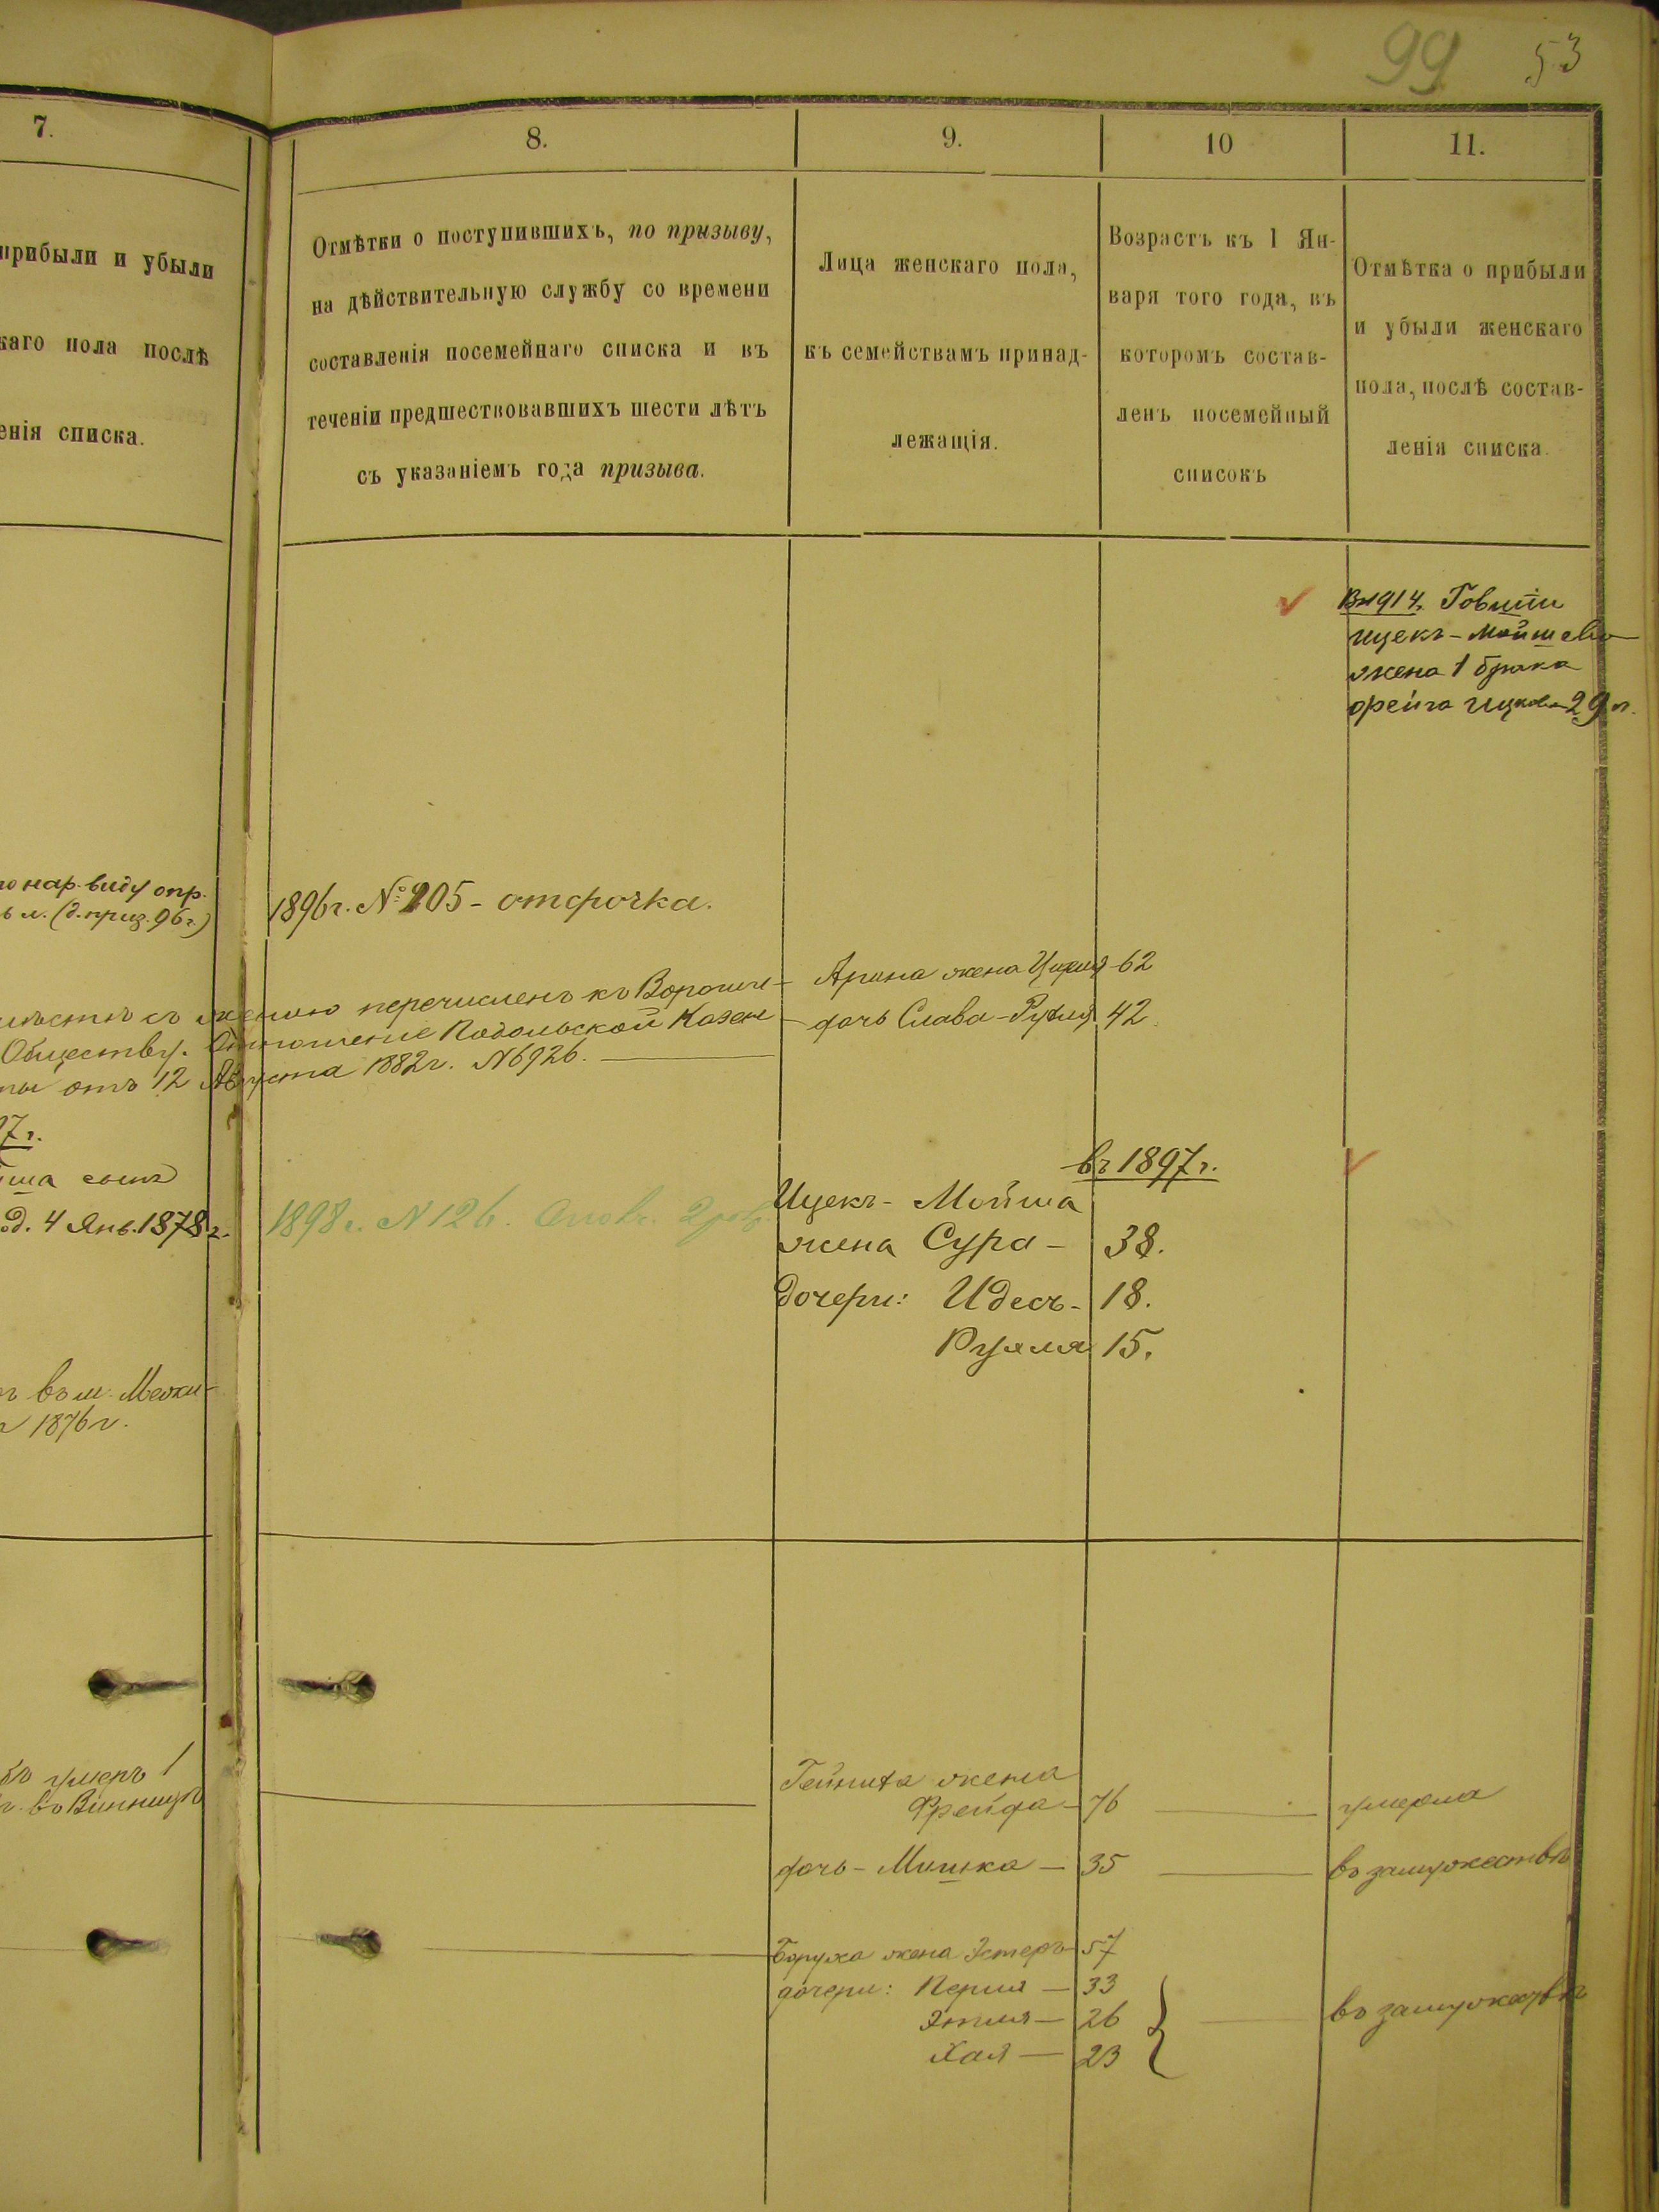 99 53
7.
8.
9.
10
11.
прибыли и убыли
каго пола послѣ
енія списка.
Отмѣтки о поступившихъ, по призыву,
на дѣйствительную службу со времени
составленія посемейнаго списка и въ
теченіи предшествовавшихъ шести лѣтъ
съ указаніемъ года призыва.
Лица женскаго пола,
къ семействамъ принад-
лежащія.
Возрастъ къ 1 Ян-
варя того года, въ
которомъ состав-
ленъ посемейный
списокъ
Отмѣтка о прибыли
и убыли женскаго
пола, послѣ состав-
ленія списка.
Въ 1914.
Ицекъ-Мойшева
жена 1 брака
29 л.
по нар. виду опр.
(д. приз. 96 г.)
1896 г. № 205 - отсрочка.
перечисленъ къ
Арона жена 62
Обществу. Отношение Подольской Казен
дочь Слава-Рухля 42.
отъ 12 Августа 1882 г. № 6926.
97 г.
сынъ
4 Янв. 1878 г.
1898 г. № 126.
въ 1897 г.
Ицекъ-Мойша
жена Сура - 38.
дочери: Идесъ - 18.
Рухля 15.
1876 г.
умеръ
въ Винницѣ
жена
Фрейда - 76 умерла
дочь - Мишка - 35 въ замужествѣ
Боруха жена Эстеръ 57
дочери: Перля - 33
Этля - 26 въ замужествѣ
Хая - 23